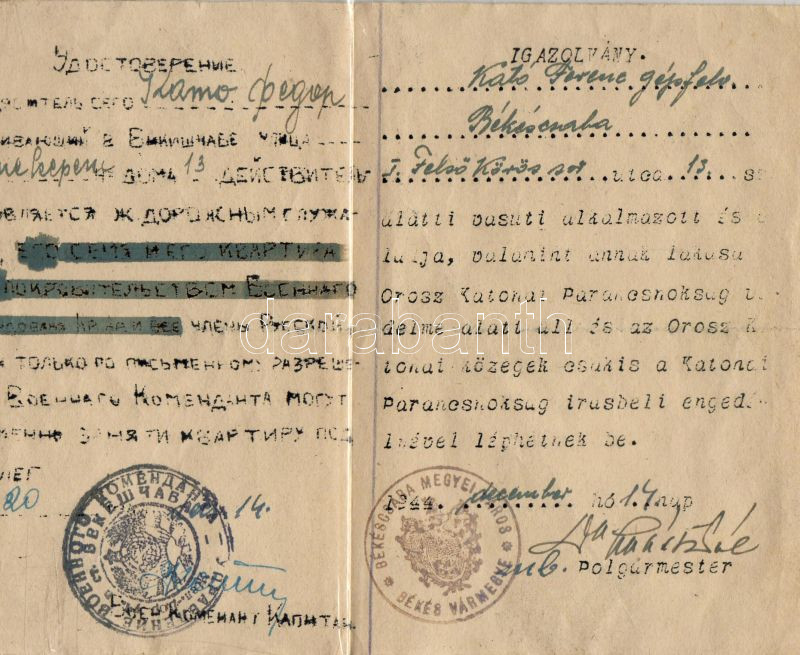 Удостоверение
сего Като Федор
в Бикишчабе улица
13 действитель
является ж.дорожным служа-
его семя и его квартира
покровительством Военнаго
члены Русской
только по письменному разреше-
Военнаго Коменданта могут
заняти квартиру под
20 14.
ВОЕННОГО КОМЕНДАНТА
Г. БЕКЕШЧАБ
Комендант Капитан
IGAZOLVÁNY.
Kató Ferenc gépfelv.
Békéscsaba
I. Felső Körös sor utca 13. sz
alatti vasuti alkalmazott és c
ládja, valamint annak lakása
Orosz Katonai Parancsnokság v
delme alatt áll és az Orosz K
tonai közegek csakis a Katonai
Parancsnokság irásbeli engedé
lnével léphetnek be.
1944. december hó 14. nap
Polgármester
BÉKÉSCSABA MEGYEI VÁROS
BÉKÉS VÁRMEGYE
darabanth